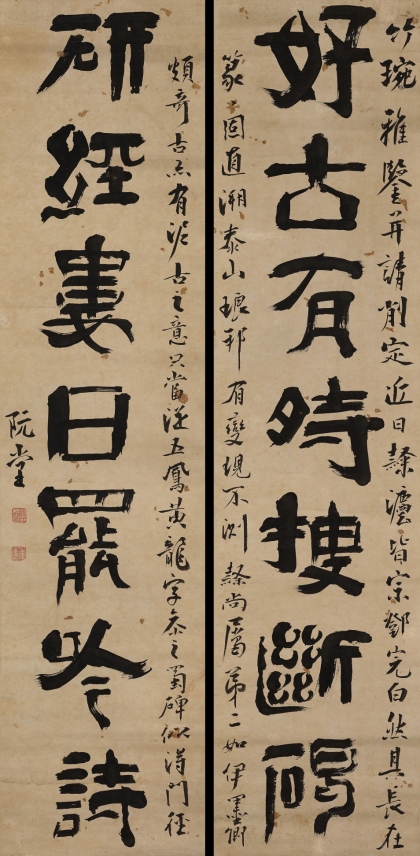 竹琬雅鑒幷請削定近日隷灋皆宗鄧完白然其長在
好古有時搜斷碣
篆〻固直溯泰山琅邪有變現不測隷尚屬第二如伊墨卿
頗奇古亦有泥古之意只當從五鳳黃龍字參之蜀碑似得門徑
研經婁日罷吟詩
阮堂